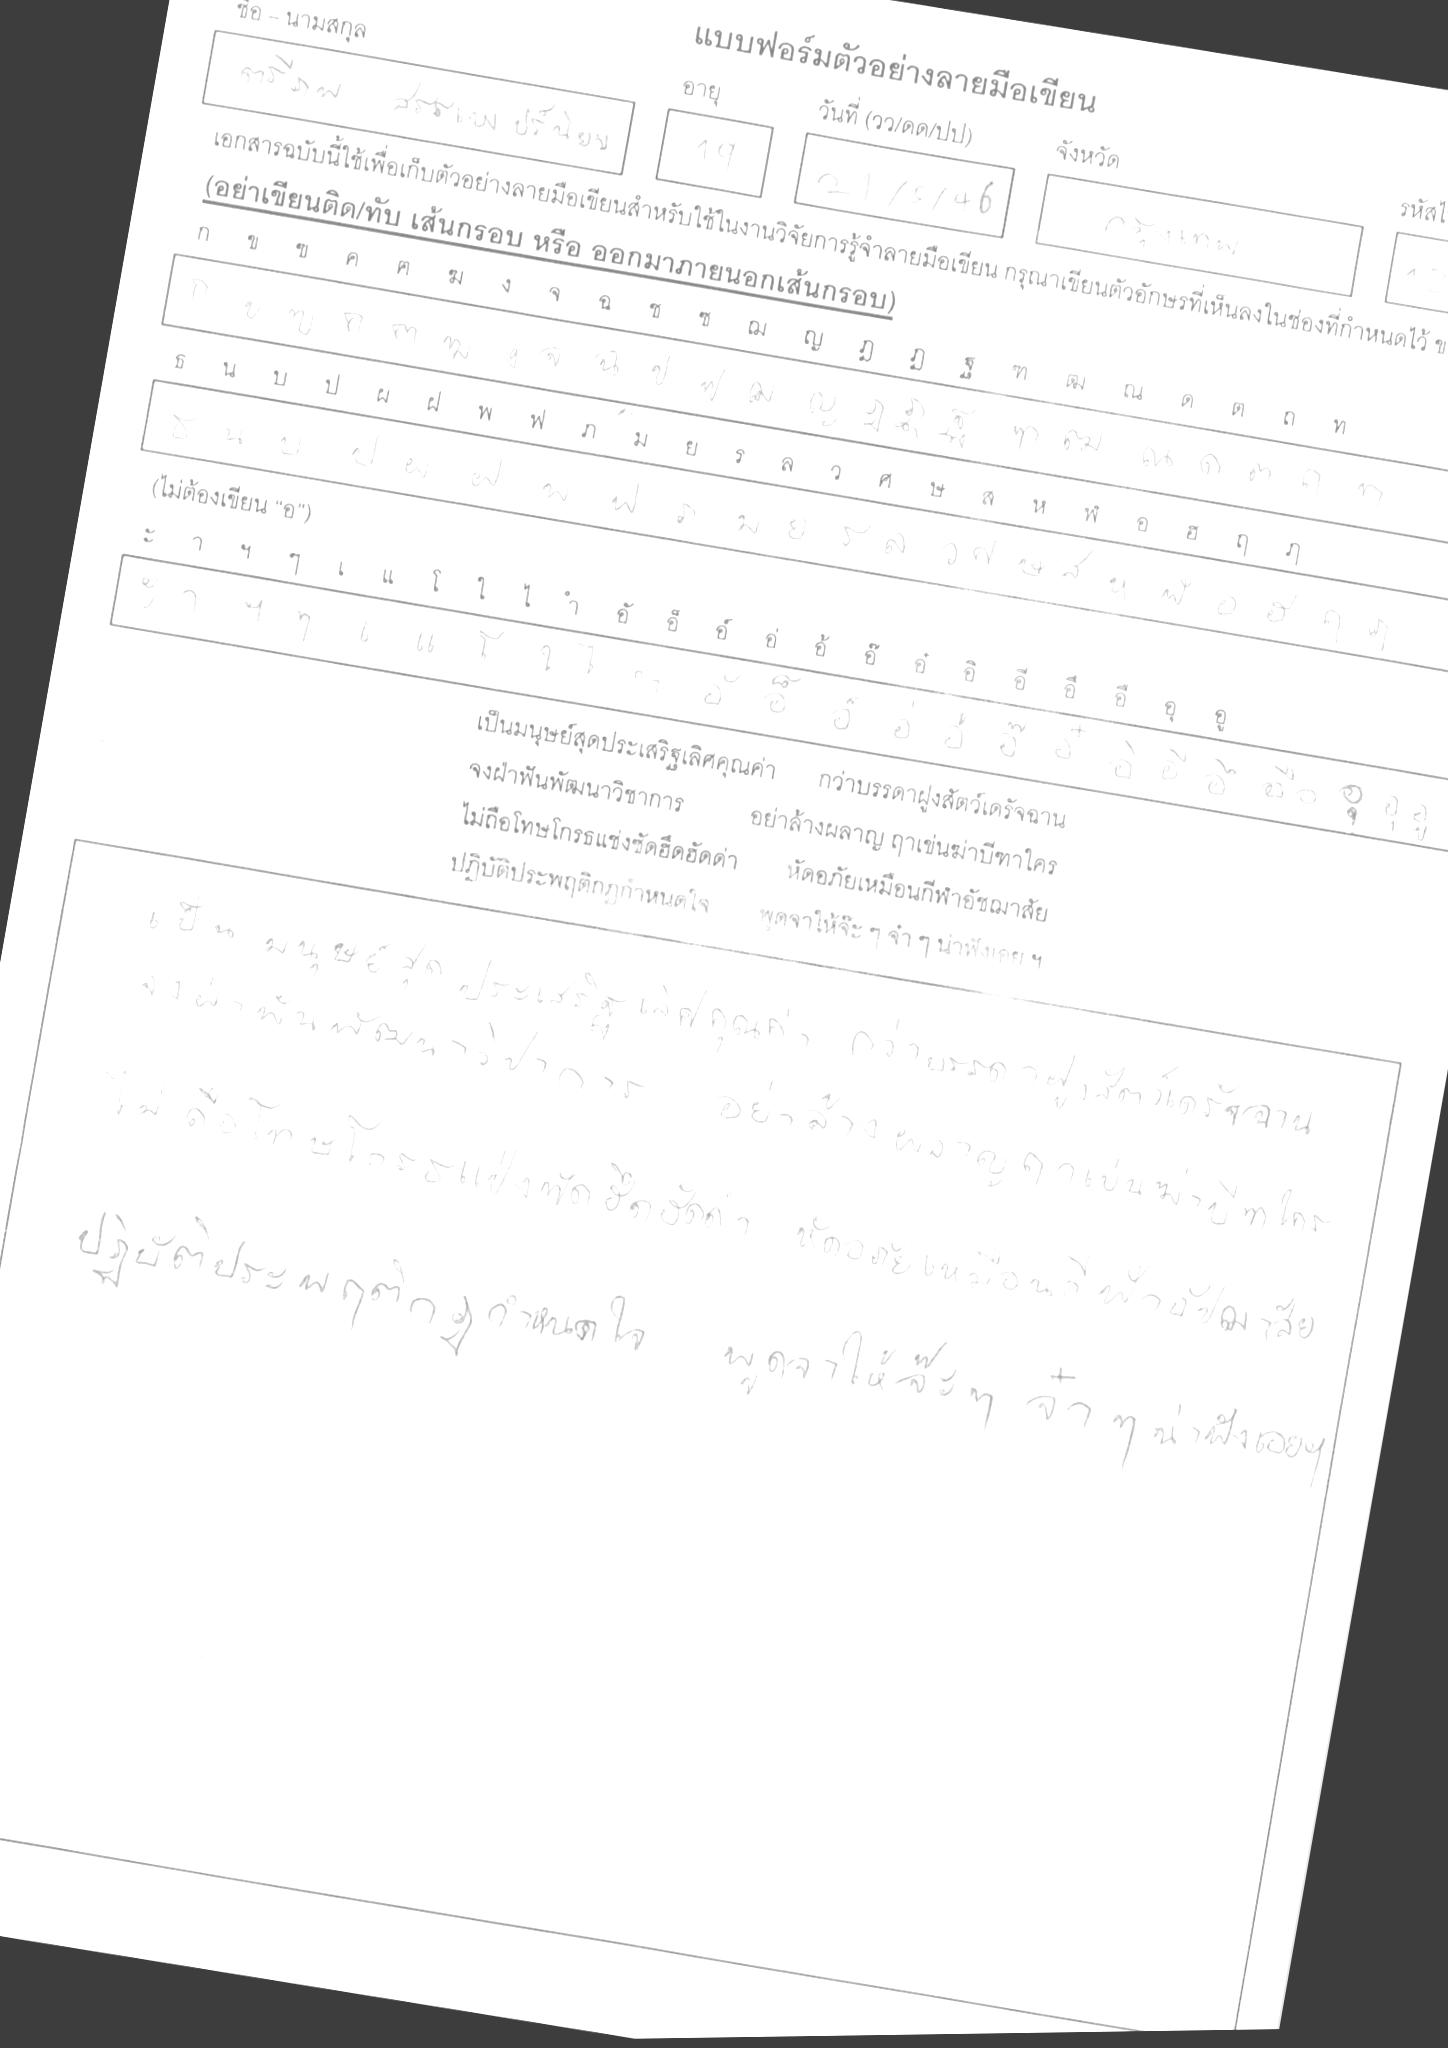 แบบฟอร์มตัวอย่างลายมือเขียน
ชื่อ – นามสกุล อายุ วันที่ (วว/ดด/ปป) จังหวัด
19 21/5/46 กรุงเทพ
เอกสารฉบับนี้ใช้เพื่อเก็บตัวอย่างลายมือเขียนสำหรับใช้ในงานวิจัยการรู้จำลายมือเขียน กรุณาเขียนตัวอักษรที่เห็นลงในช่องที่กำหนดไว้
(อย่าเขียนติด/ทับ เส้นกรอบ หรือ ออกมาภายนอกเส้นกรอบ)
ก ข ฃ ค ฅ ฆ ง จ ฉ ช ซ ฌ ญ ฎ ฏ ฐ ฑ ฒ ณ ด ต ถ ท
ก ข ฃ ค ฅ ฆ ง จ ฉ ช ซ ฌ ญ ฎ ฏ ฐ ฑ ฒ ณ ด ต ถ ท
ธ น บ ป ผ ฝ พ ฟ ภ ม ย ร ล ว ศ ษ ส ห ฬ อ ฮ ฤ ฦ
ธ น บ ป ผ ฝ พ ฟ ภ ม ย ร ล ว ศ ษ ส ห ฬ อ ฮ ฤ ฦ
(ไม่ต้องเขียน "อ")
ะ า ฯ ๆ เ แ โ ใ ไ ำ อั อ็ อ์ อ่ อ้ อ๊ อ๋ อิ อี อึ อื อุ อู
เป็นมนุษย์สุดประเสริฐเลิศคุณค่า กว่าบรรดาฝูงสัตว์เดรัจฉาน
จงฝ่าฟันพัฒนาวิชาการ อย่าล้างผลาญ ฤาเข่นฆ่าบีฑาใคร
ไม่ถือโทษโกรธแช่งซัดฮึดฮัดด่า หัดอภัยเหมือนกีฬาอัชฌาสัย
ปฏิบัติประพฤติกฎกำหนดใจ พูดจาให้จ๊ะ ๆ จ๋า ๆ น่าฟังเอย ฯ
เป็นมนุษย์สุดประเสริฐเลิศคุณค่า กว่าบรรดาฝูงสัตว์เดรัจฉาน
จงฝ่าฟันพัฒนาวิชาการ อย่าล้างผลาญ ฤาเข่นฆ่าบีฑาใคร
ไม่ถือโทษโกรธแช่งซัดฮึดฮัดด่า หัดอภัยเหมือนกีฬาอัชฌาสัย
ปฏิบัติประพฤติกฎกำหนดใจ พูดจาให้จ๊ะๆ จ๋า ๆ น่าฟังเอยฯ